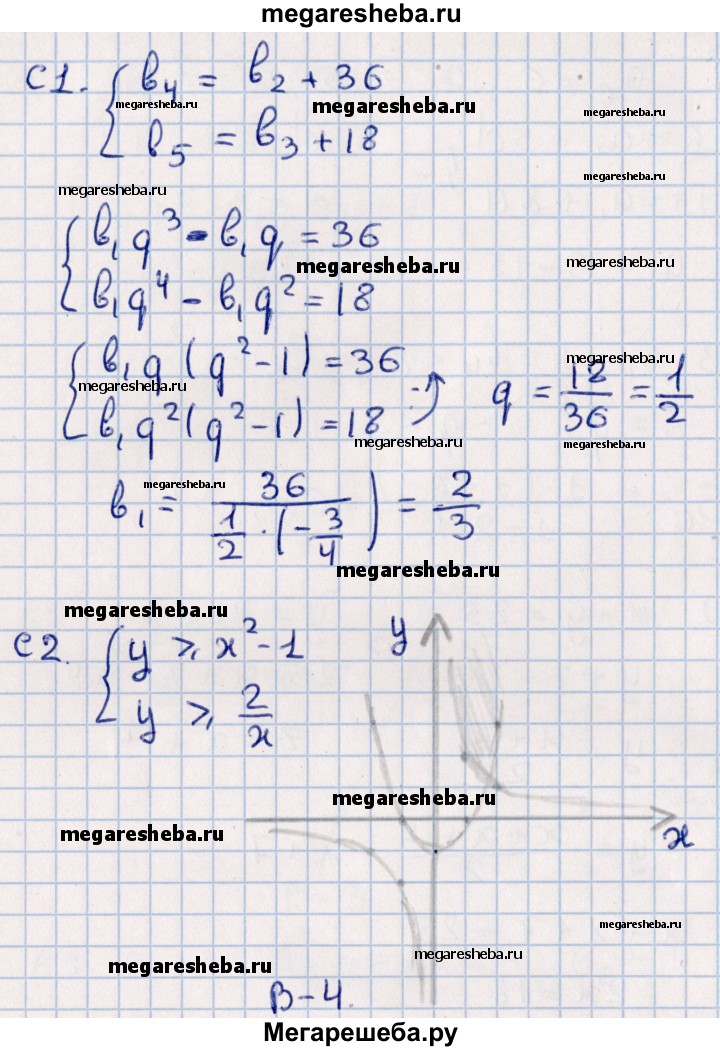 megaresheba.ru
С1. { b₄ = b₂ + 36
megaresheba.ru megaresheba.ru megaresheba.ru
b₅ = b₃ + 18
megaresheba.ru megaresheba.ru
{ b₁q³ - b₁q = 36
megaresheba.ru megaresheba.ru
b₁q⁴ - b₁q² = 18
{ b₁q (q² - 1) = 36
megaresheba.ru megaresheba.ru
b₁q² (q² - 1) = 18 :⤴ q = 18/36 = 1/2
megaresheba.ru megaresheba.ru
megaresheba.ru megaresheba.ru
b₁ = 36 / (1/2 · (-3/4)) = -2/3
megaresheba.ru
megaresheba.ru
С2. { y ⩾ x² - 1 y
y ⩾ 2/x
megaresheba.ru
megaresheba.ru x
megaresheba.ru
megaresheba.ru
megaresheba.ru
В-4.
Мегарешеба.ру